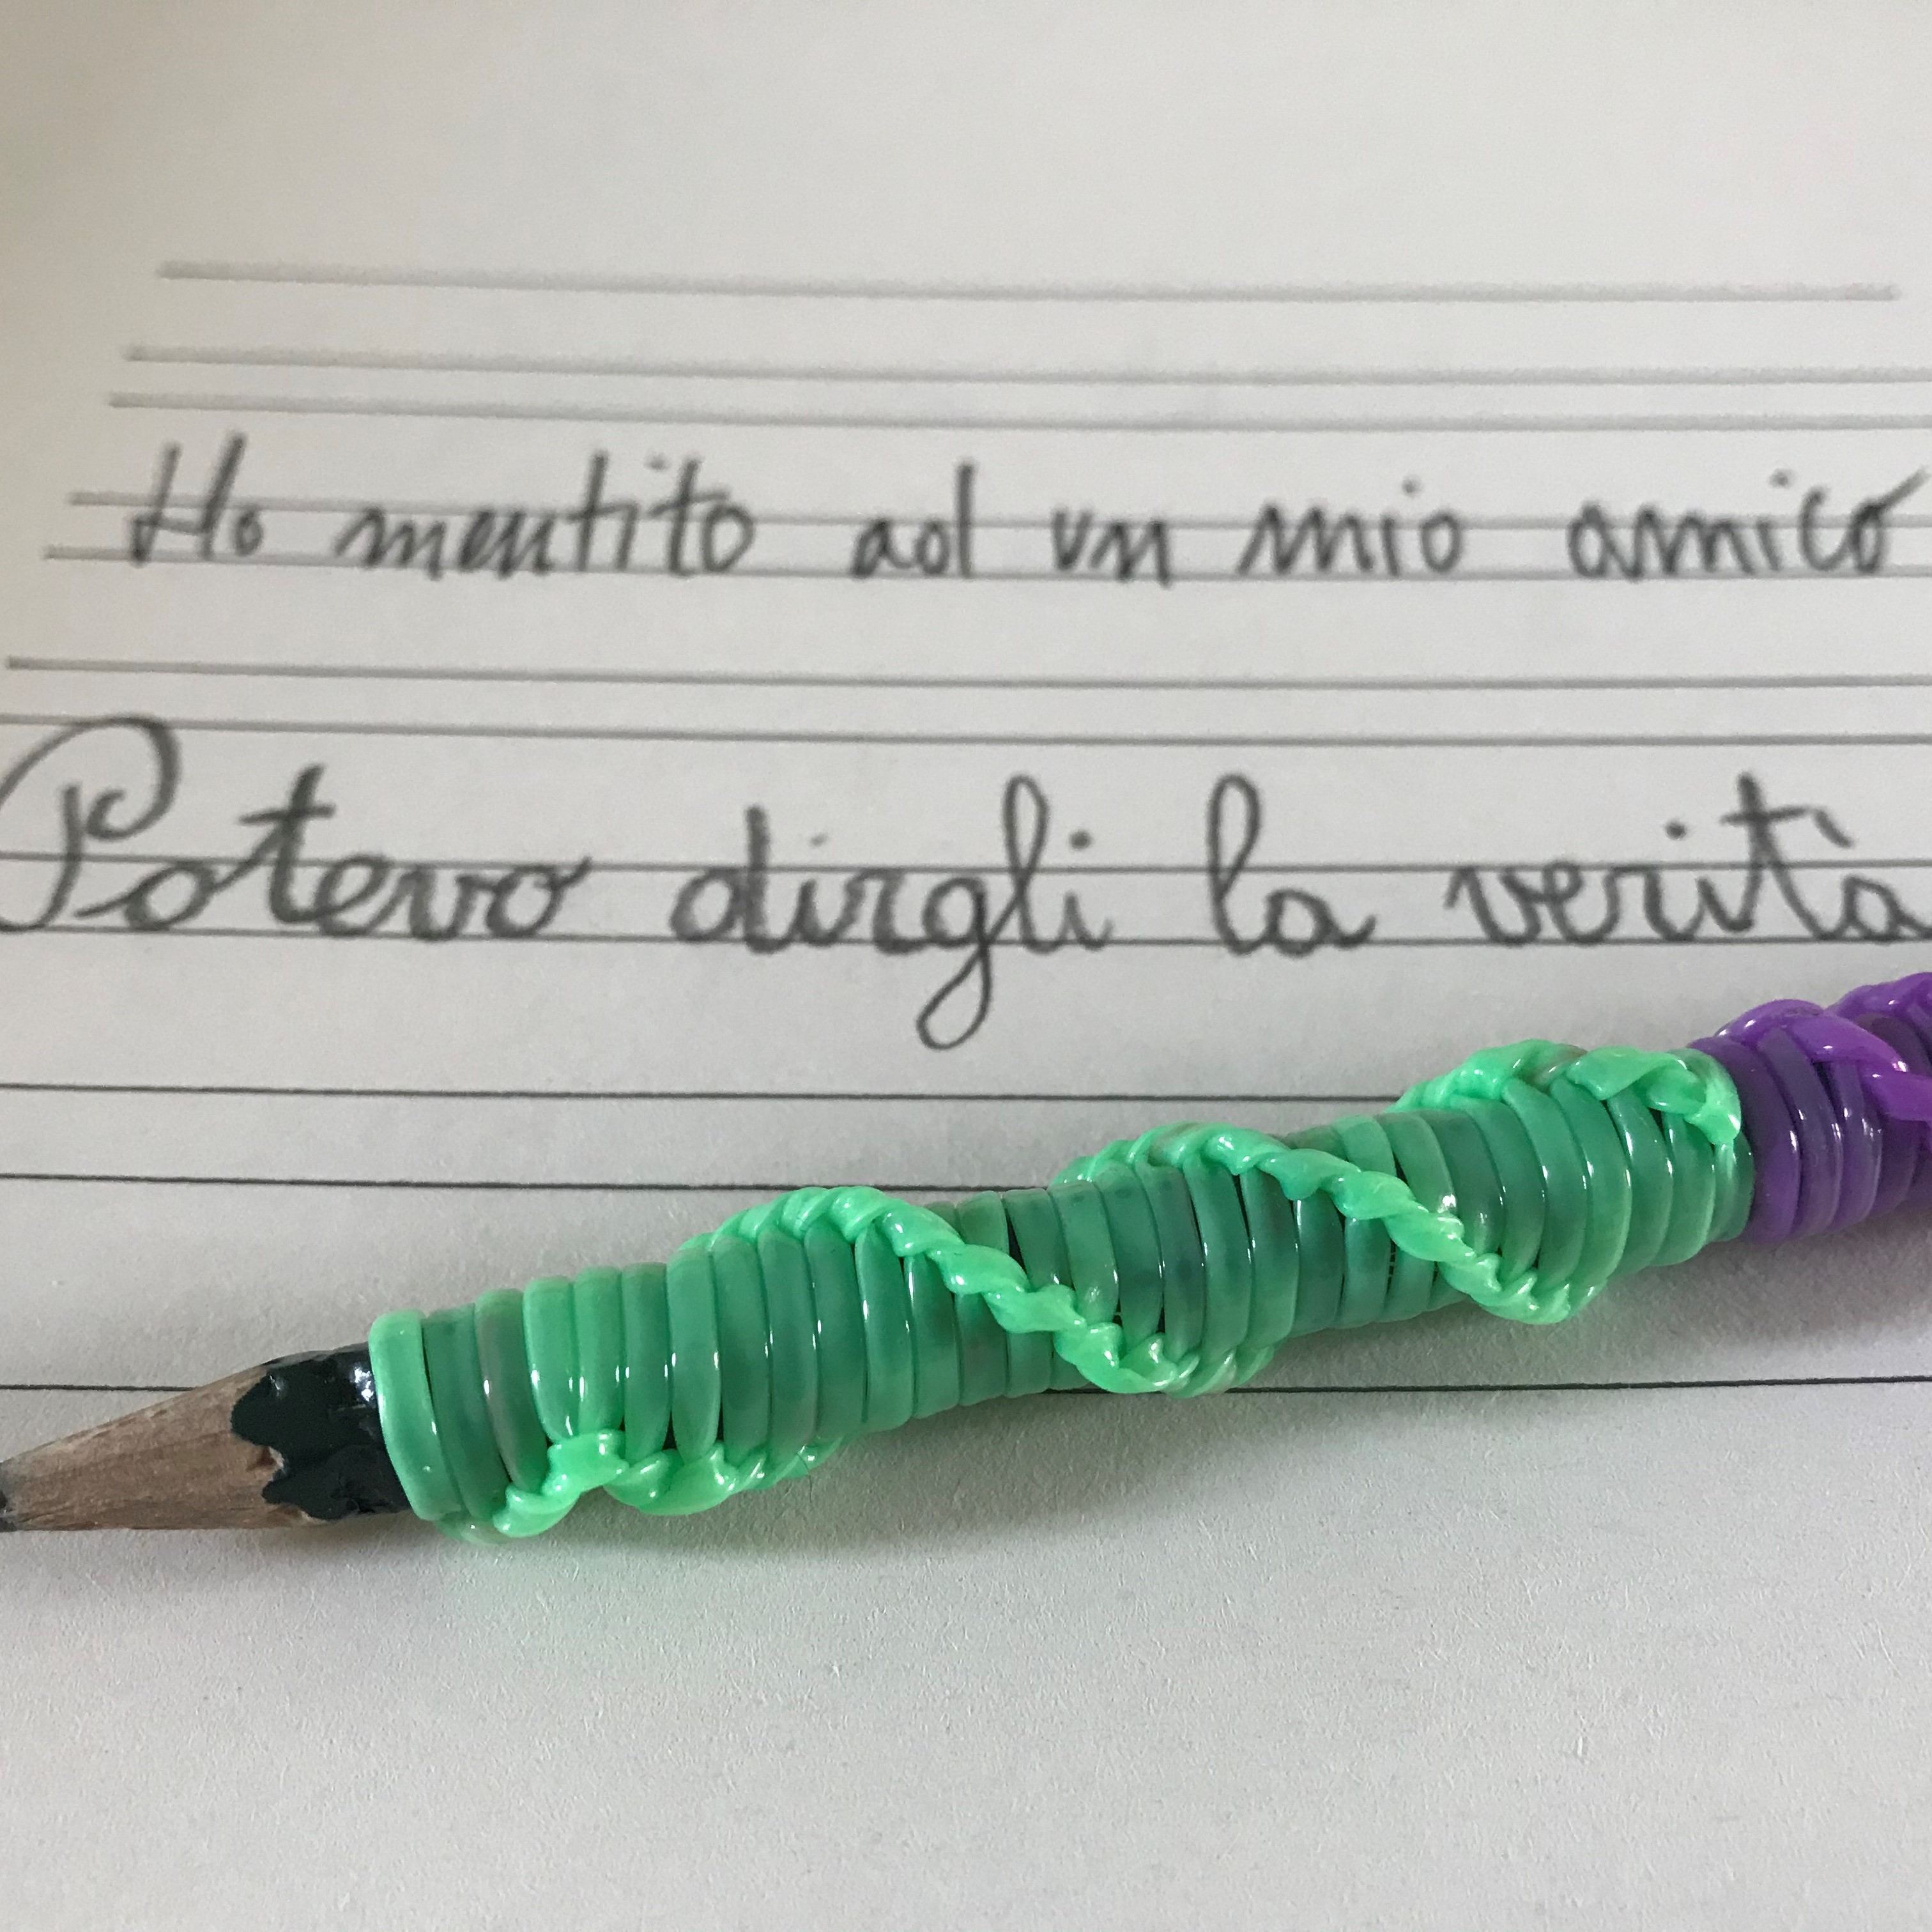 Ho mentito ad un mio amico
Potevo dirgli la verità